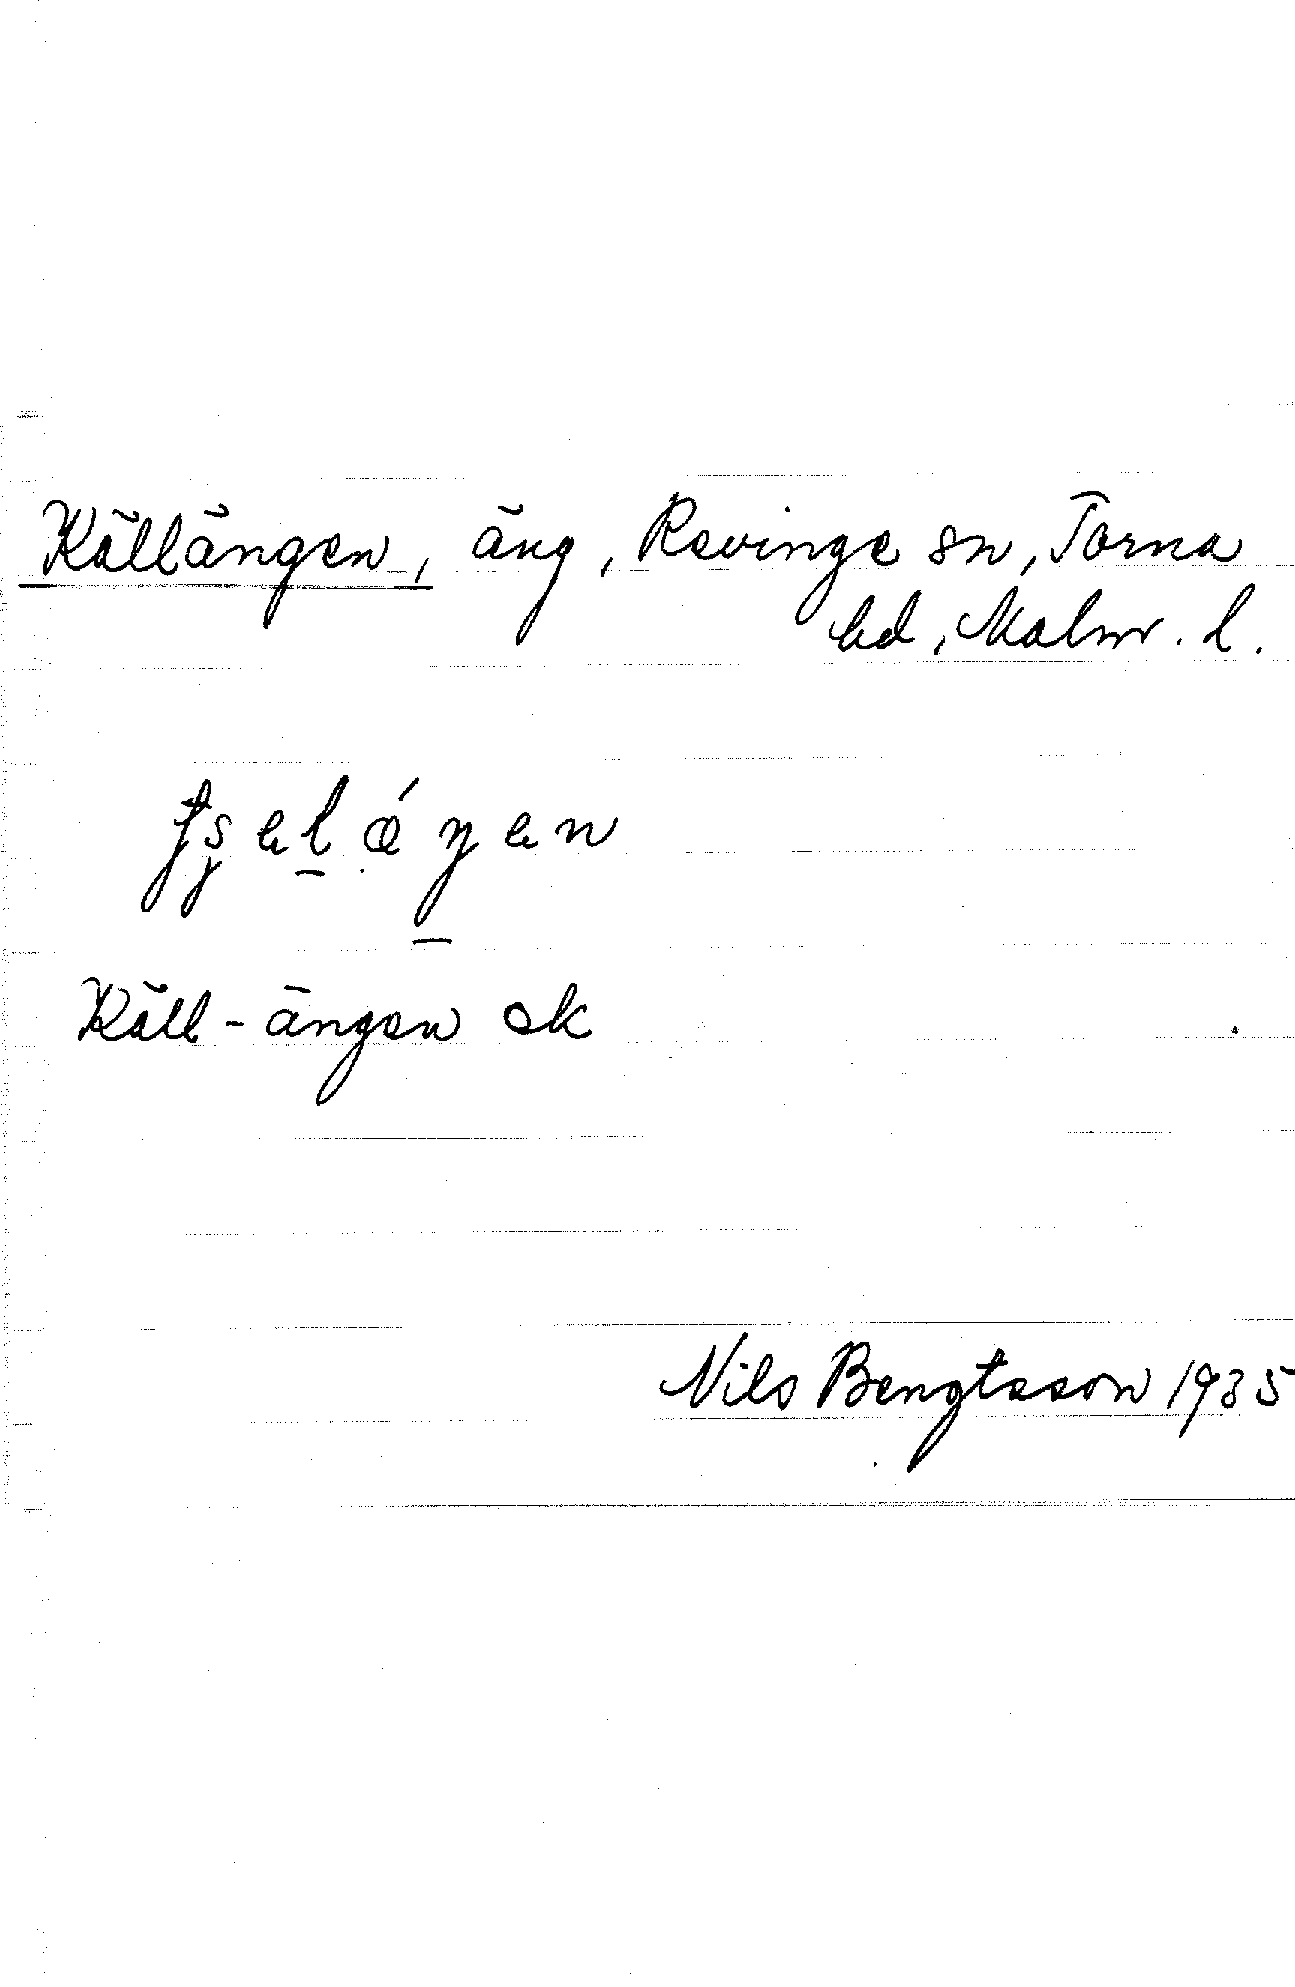 Källängen, äng, Revinge sn, Torna
hd, Malm. l.
Käll-ängen ek
Nils Bengtsson 1935